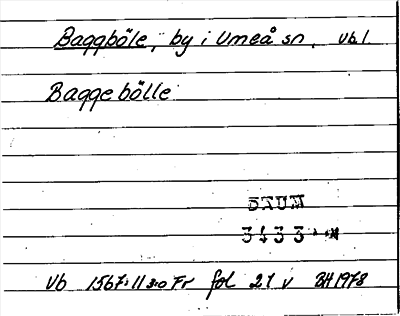 Baggböle, by i Umeå sn, Vb l.
Baggebölle
DAUM
3433
Vb 1567:11 Fr fol 21 v BH 1978